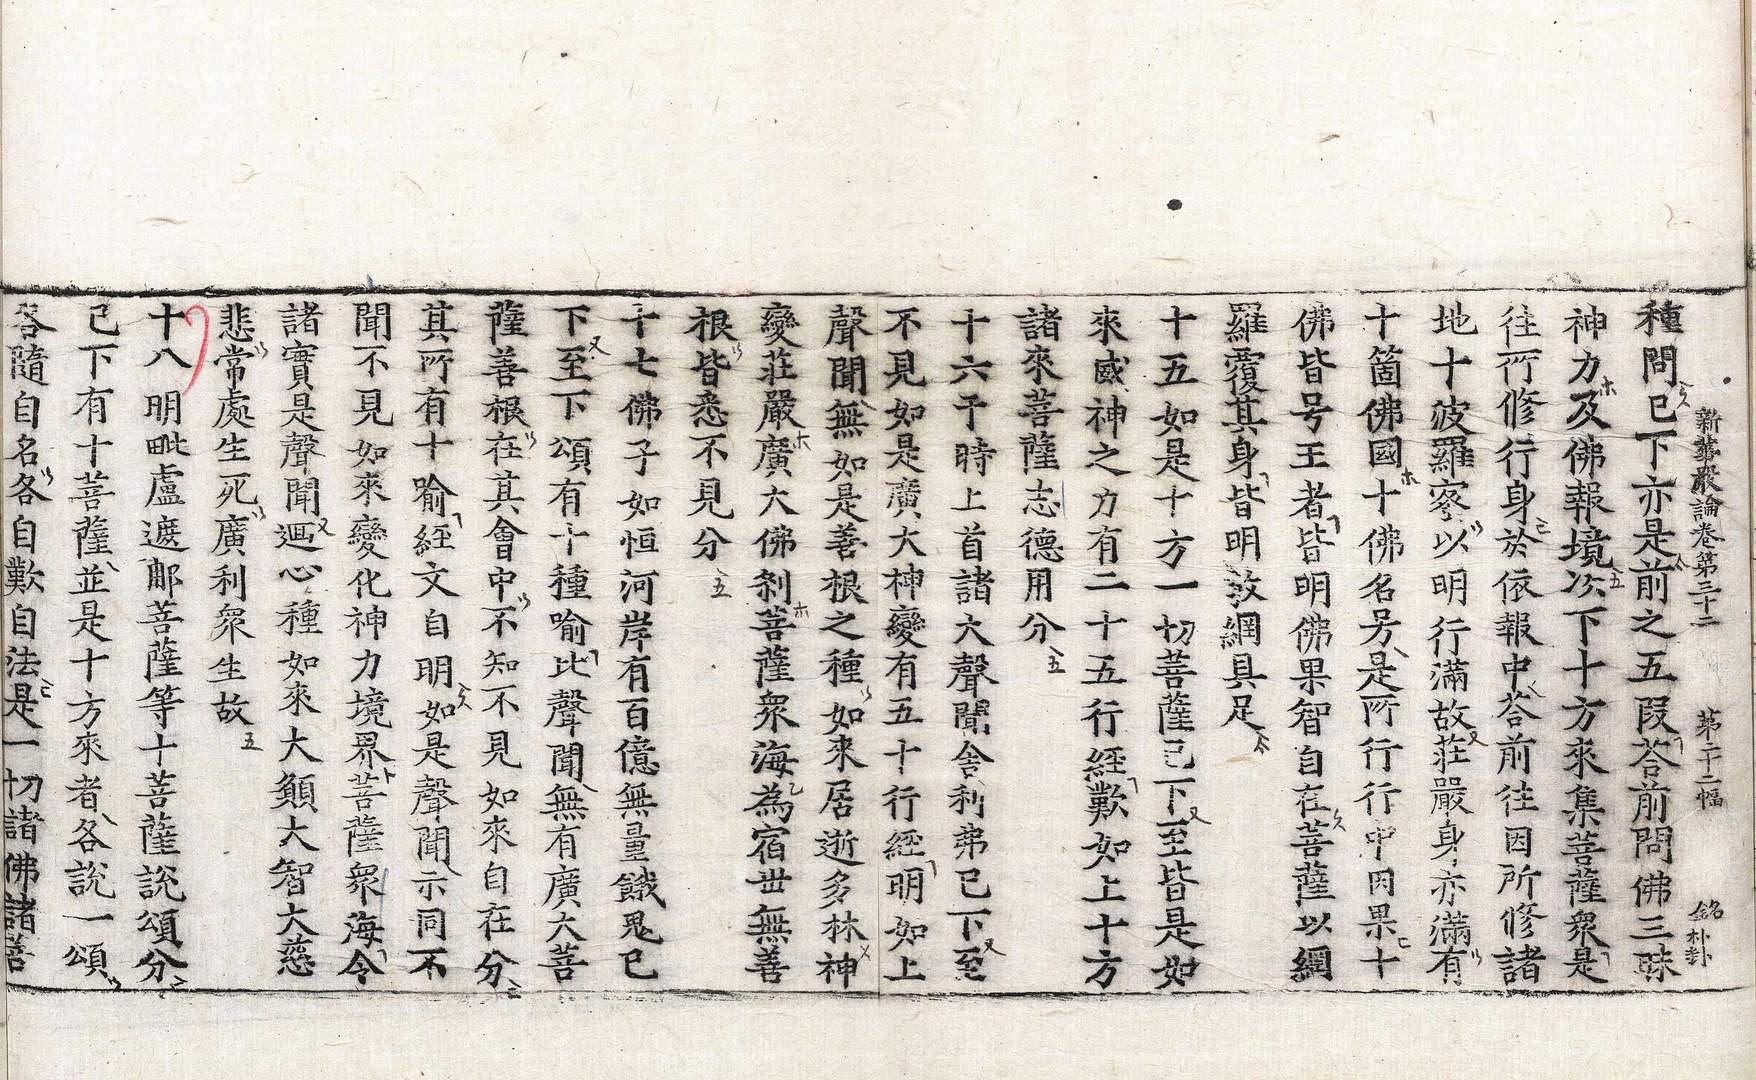 新華嚴論卷第三十二　第十二幅　銘朴卦
種問已下亦是前之五段荅前問佛三昧
神力及佛報境次下十方來集菩薩衆是
往所修行身於依報中荅前往因所修諸
地十波羅蜜以明行滿故莊嚴身亦滿有
十箇佛國十佛名号是所行行中因果十
佛皆号王者皆明佛果智自在菩薩以網
羅覆其身皆明教網具足
十五如是十方一切菩薩已下至皆是如
來威神之力有二十五行經歎如上十方
諸來菩薩志德用分
十六于時上首諸大聲聞舍利弗已下至
不見如是廣大神變有五十行經明如上
聲聞無如是善根之種如來居逝多林神
變莊嚴廣大佛刹菩薩衆海為宿世無善
根皆悉不見分
十七佛子如恒河岸有百億無量餓鬼已
下至下頌有十種喻比聲聞無有廣大菩
薩善根在其會中不知不見如來自在分
其所有十喻經文自明如是聲聞示同不
聞不見如來變化神力境界菩薩衆海令
諸實是聲聞迴心種如來大願大智大慈
悲常處生死廣利衆生故
十八明毗盧遮那菩薩等十菩薩說頌分
已下有十菩薩並是十方來者各說一頌
各隨自名各自歎自法是一切諸佛諸菩